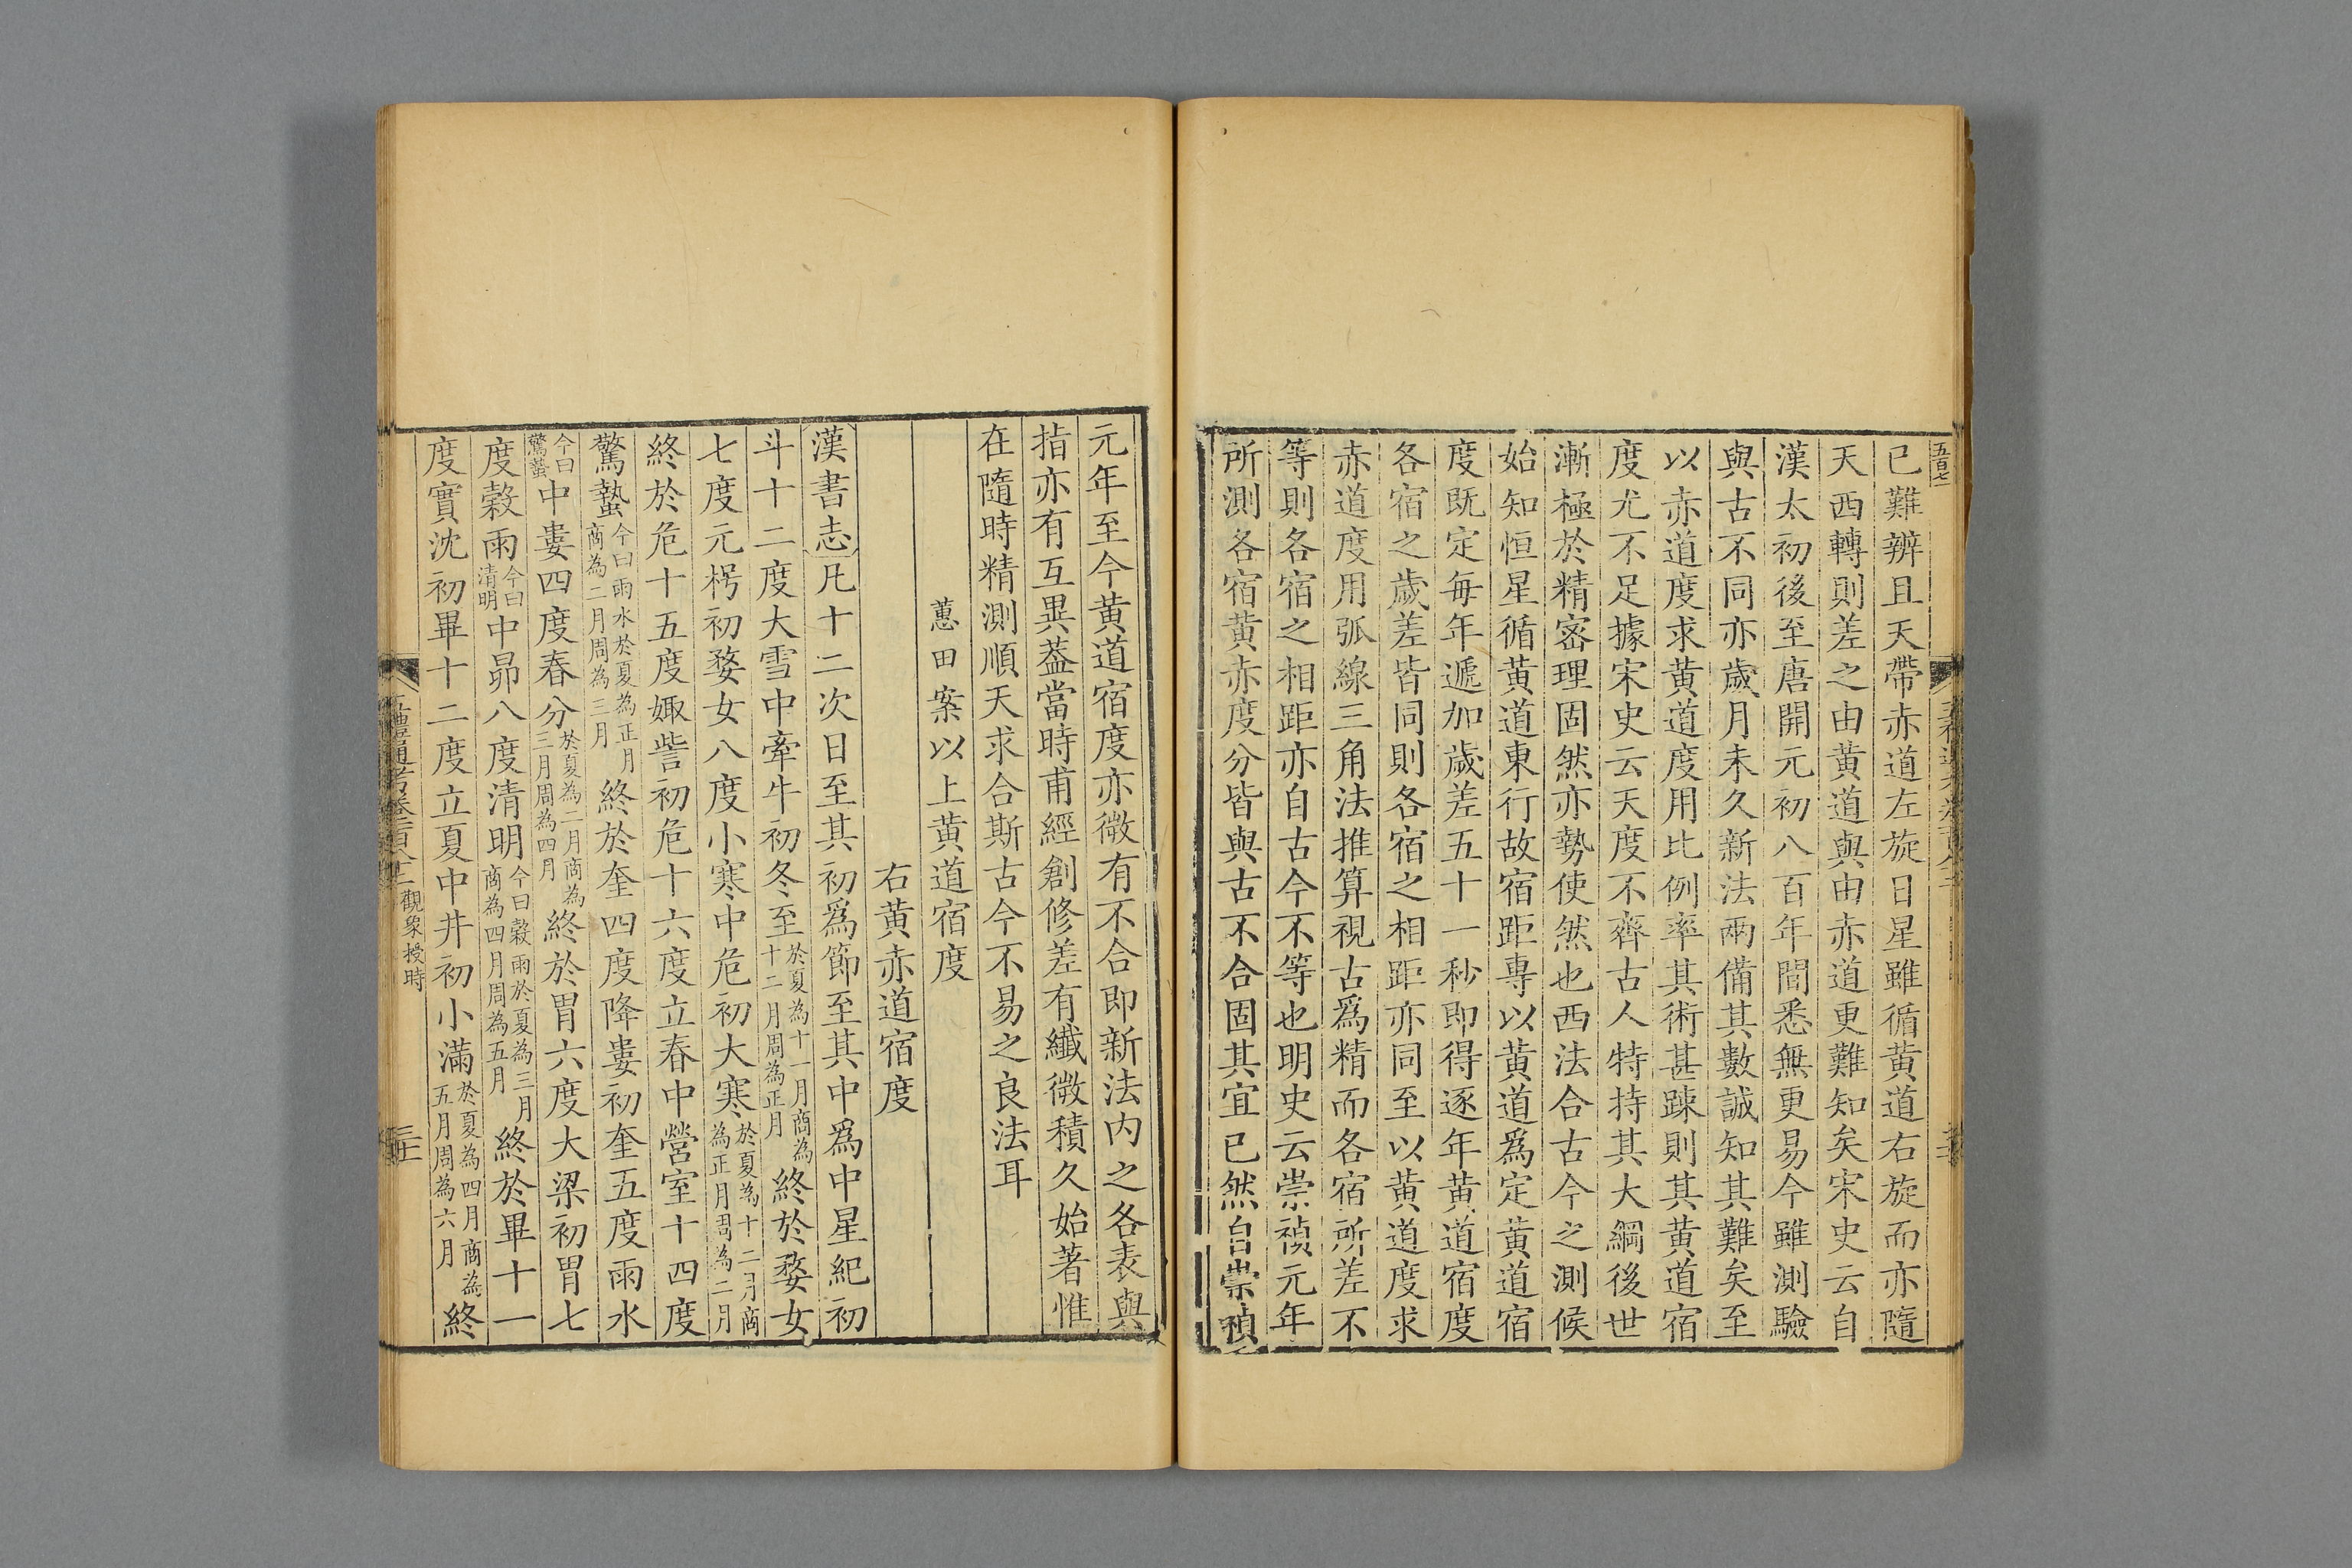 已難辨且天帶赤道左旋日星雖循黄道右旋而亦隨
天西轉則差之由黄道與由赤道更難知矣宋史云自
漢太初後至唐開元初八百年間悉無更易今雖測驗
與古不同亦歲月未久新法兩備其數誠知其難矣至
以赤道度求黄道度用比例率其術甚踈則其黄道宿
度尤不足據宋史云天度不齊古人特持其大綱後世
漸極於精宻理固然亦勢使然也西法合古今之測候
始知恒星循黄道東行故宿距專以黄道爲定黄道宿
度既定每年遞加歲差五十一秒即得逐年黄道宿度
各宿之歲差皆同則各宿之相距亦同至以黄道度求
赤道度用弧線三角法推算視古爲精而各宿所差不
等則各宿之相距亦自古今不等也明史云崇禎元年
所測各宿黄赤度分皆與古不合固其宜已然自崇禎
元年至今黄道宿度亦微有不合即新法内之各表與
指亦有互異葢當時甫經創修差有纖微積久始著惟
在隨時精測順天求合斯古今不易之良法耳
蕙田案以上黄道宿度
右黄赤道宿度
漢書志凡十二次日至其初爲節至其中爲中星紀初
斗十二度大雪中牽牛初冬至於夏為十一月商為十二月周為正月終於婺女
七度元枵初婺女八度小寒中危初大寒於夏為十二月商為正月周為二月
終於危十五度娵訾初危十六度立春中營室十四度
驚蟄今曰雨水於夏為正月商為二月周為三月終於奎四度降婁初奎五度雨水
今曰驚蟄中婁四度春分於夏為二月商為三月周為四月終於胃六度大梁初胃七
度穀雨今曰清明中昴八度清明今曰穀雨於夏為三月商為四月周為五月終於畢十一
度實沈初畢十二度立夏中井初小滿於夏為四月商為五月周為六月終
觀象授時